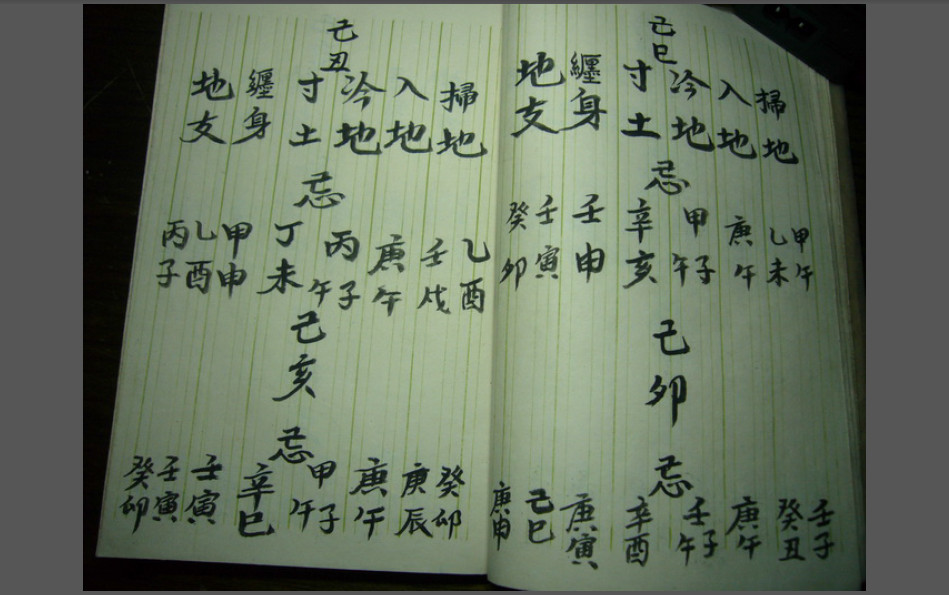 己巳
掃地
入地
冷地
寸土
纏身
地支
忌
甲午
乙未
庚午
甲子午
辛亥
壬申
壬寅
癸卯
己卯
忌
壬子
癸丑
庚午
壬子午
辛酉
庚寅
己巳
庚申
己丑
掃地
入地
冷地
寸土
纏身
地支
忌
乙酉
壬戌
庚午
丙子午
丁未
甲申
乙酉
丙子
己亥
忌
癸卯
庚辰
庚午
甲子午
辛巳
壬寅
壬寅
癸卯